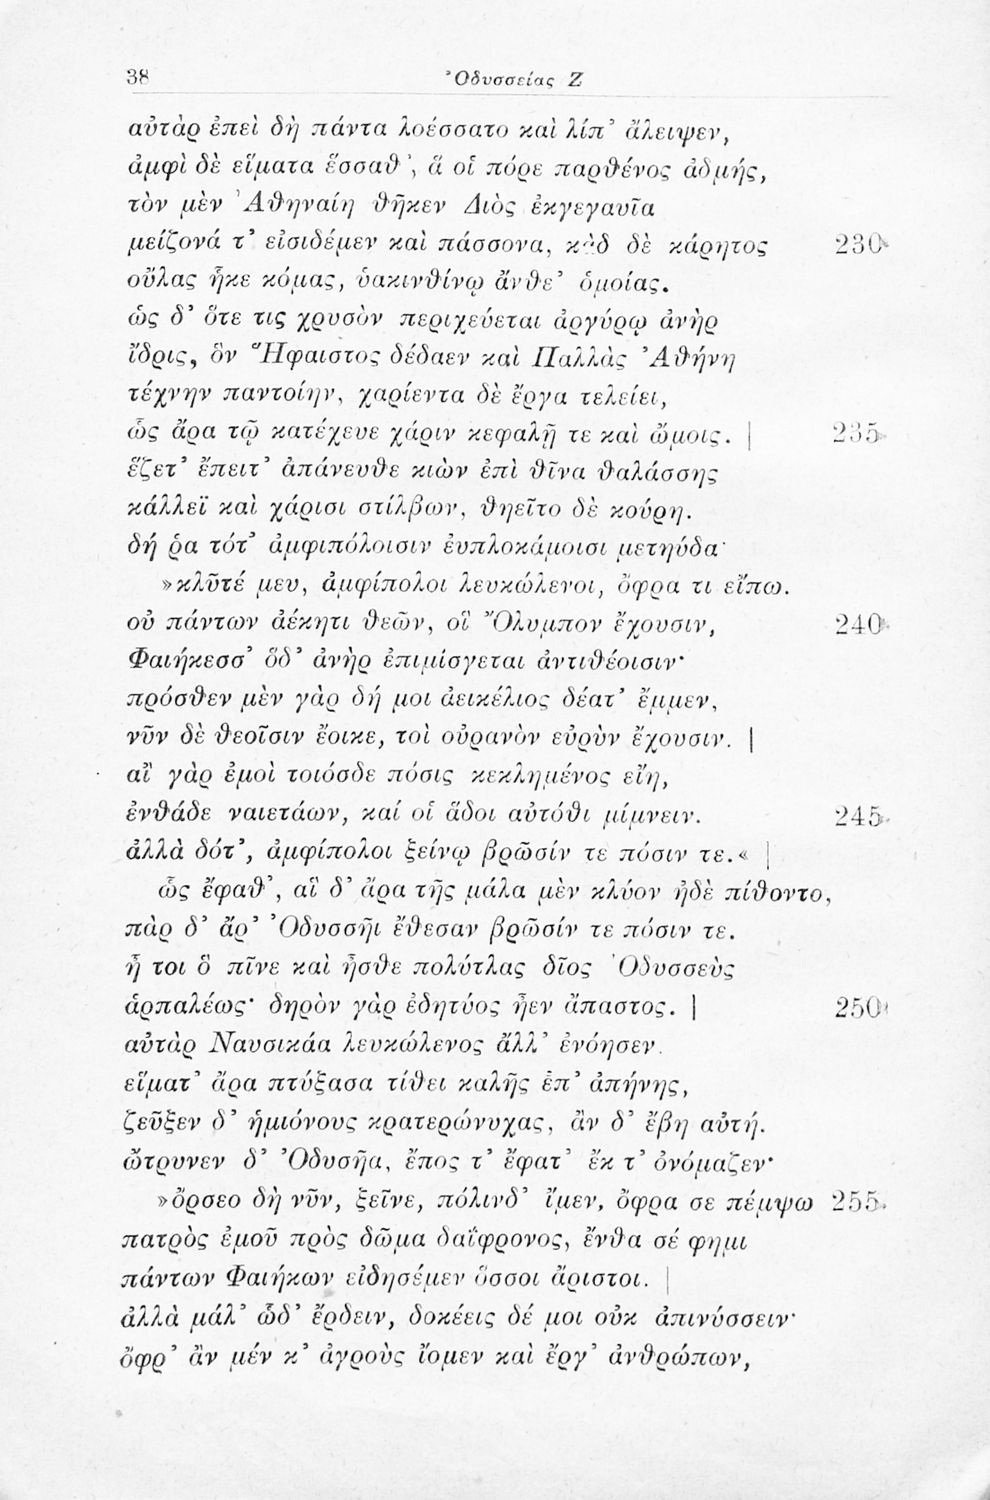 38 Ὀδυσσείας Ζ
αὐτὰρ ἐπεὶ δὴ πάντα λοέσσατο καὶ λίπ᾽ ἄλειψεν,
ἀμφὶ δὲ εἵματα ἕσσαθ᾽, ἅ οἱ πόρε παρθένος ἀδμής,
τὸν μὲν Ἀθηναίη θῆκεν Διὸς ἐκγεγαυῖα
μείζονά τ᾽ εἰσιδέμεν καὶ πάσσονα, κὰδ δὲ κάρητος 230
οὔλας ἧκε κόμας, ὑακινθίνῳ ἄνθε᾽ ὁμοίας.
ὡς δ᾽ ὅτε τις χρυσὸν περιχεύεται ἀργύρῳ ἀνὴρ
ἴδρις, ὃν Ἥφαιστος δέδαεν καὶ Παλλὰς Ἀθήνη
τέχνην παντοίην, χαρίεντα δὲ ἔργα τελείει,
ὣς ἄρα τῷ κατέχευε χάριν κεφαλῇ τε καὶ ὤμοις. | 235
ἕζετ᾽ ἔπειτ᾽ ἀπάνευθε κιὼν ἐπὶ θῖνα θαλάσσης
κάλλεϊ καὶ χάρισι στίλβων, θηεῖτο δὲ κούρη.
δή ῥα τότ᾽ ἀμφιπόλοισιν ἐυπλοκάμοισι μετηύδα·
»κλῦτέ μευ, ἀμφίπολοι λευκώλενοι, ὄφρα τι εἴπω.
οὐ πάντων ἀέκητι θεῶν, οἳ Ὄλυμπον ἔχουσιν, 240
Φαιήκεσσ᾽ ὅδ᾽ ἀνὴρ ἐπιμίσγεται ἀντιθέοισιν·
πρόσθεν μὲν γὰρ δή μοι ἀεικέλιος δέατ᾽ ἔμμεν,
νῦν δὲ θεοῖσιν ἔοικε, τοὶ οὐρανὸν εὐρὺν ἔχουσιν. |
αἲ γὰρ ἐμοὶ τοιόσδε πόσις κεκλημένος εἴη,
ἐνθάδε ναιετάων, καί οἱ ἅδοι αὐτόθι μίμνειν. 245
ἀλλὰ δότ᾽, ἀμφίπολοι ξείνῳ βρῶσίν τε πόσιν τε.« |
ὣς ἔφαθ᾽, αἳ δ᾽ ἄρα τῆς μάλα μὲν κλύον ἠδὲ πίθοντο,
πὰρ δ᾽ ἄρ᾽ Ὀδυσσῆι ἔθεσαν βρῶσίν τε πόσιν τε.
ἦ τοι ὃ πῖνε καὶ ἦσθε πολύτλας δῖος Ὀδυσσεὺς
ἁρπαλέως· δηρὸν γὰρ ἐδητύος ἦεν ἄπαστος. | 250
αὐτὰρ Ναυσικάα λευκώλενος ἄλλ᾽ ἐνόησεν.
εἵματ᾽ ἄρα πτύξασα τίθει καλῆς ἐπ᾽ ἀπήνης,
ζεῦξεν δ᾽ ἡμιόνους κρατερώνυχας, ἂν δ᾽ ἔβη αὐτή.
ὤτρυνεν δ᾽ Ὀδυσῆα, ἔπος τ᾽ ἔφατ᾽ ἔκ τ᾽ ὀνόμαζεν·
»ὄρσεο δὴ νῦν, ξεῖνε, πόλινδ᾽ ἴμεν, ὄφρα σε πέμψω 255
πατρὸς ἐμοῦ πρὸς δῶμα δαΐφρονος, ἔνθα σέ φημι
πάντων Φαιήκων εἰδησέμεν ὅσσοι ἄριστοι. |
ἀλλὰ μάλ᾽ ὧδ᾽ ἔρδειν, δοκέεις δέ μοι οὐκ ἀπινύσσειν·
ὄφρ᾽ ἂν μέν κ᾽ ἀγροὺς ἴομεν καὶ ἔργ᾽ ἀνθρώπων,